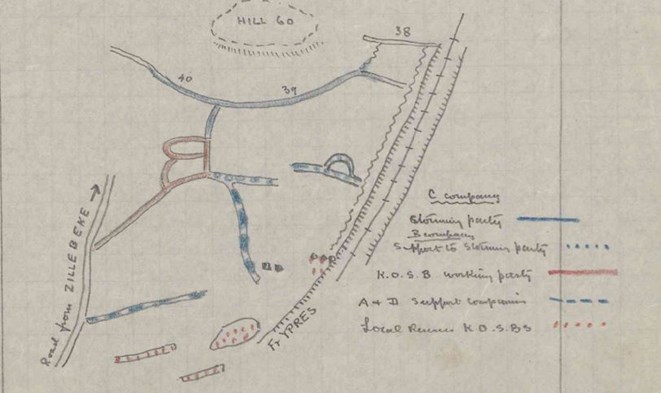 HILL 60
38
40
39
Road from ZILLEBEKE
Fr YPRES
C company
Storming party
B company
Support to Storming party
K.O.S.B working party
A & D Support Companies
Local Reserve K.O.S.Bs